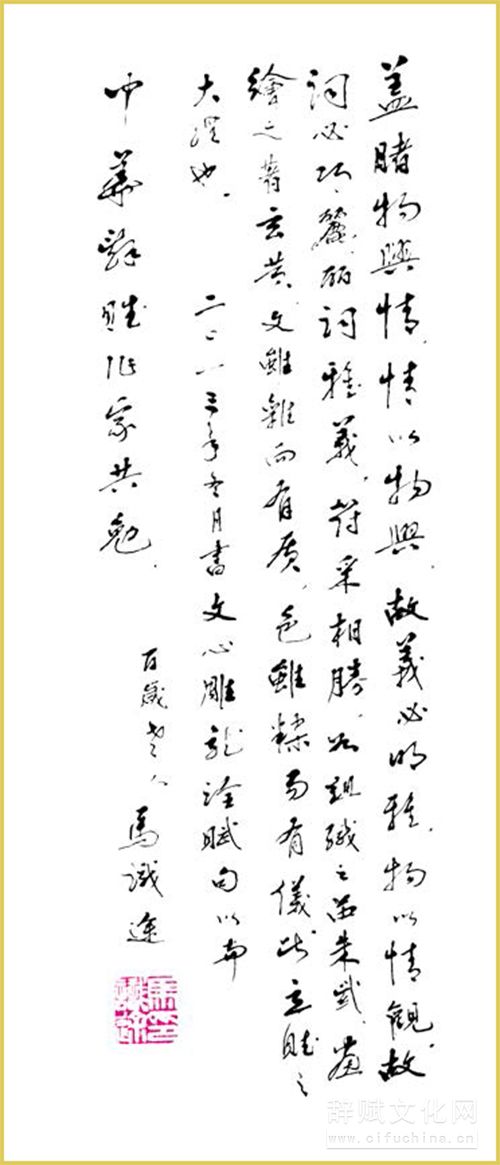 盖睹物興情，情以物興，故義必明雅，物以情觀，故
詞必巧麗，丽詞雅義，符采相勝，如組織之品朱紫，畫
繪之著玄黄，文雖雜而有质，色雖糅而有儀，此立賦之
大體也。二〇一三年冬月書文心雕龍詮賦句以与
中華辭賦作家共勉．
百歲老人 馬識途
辞赋文化网
www.cifuchina.cn